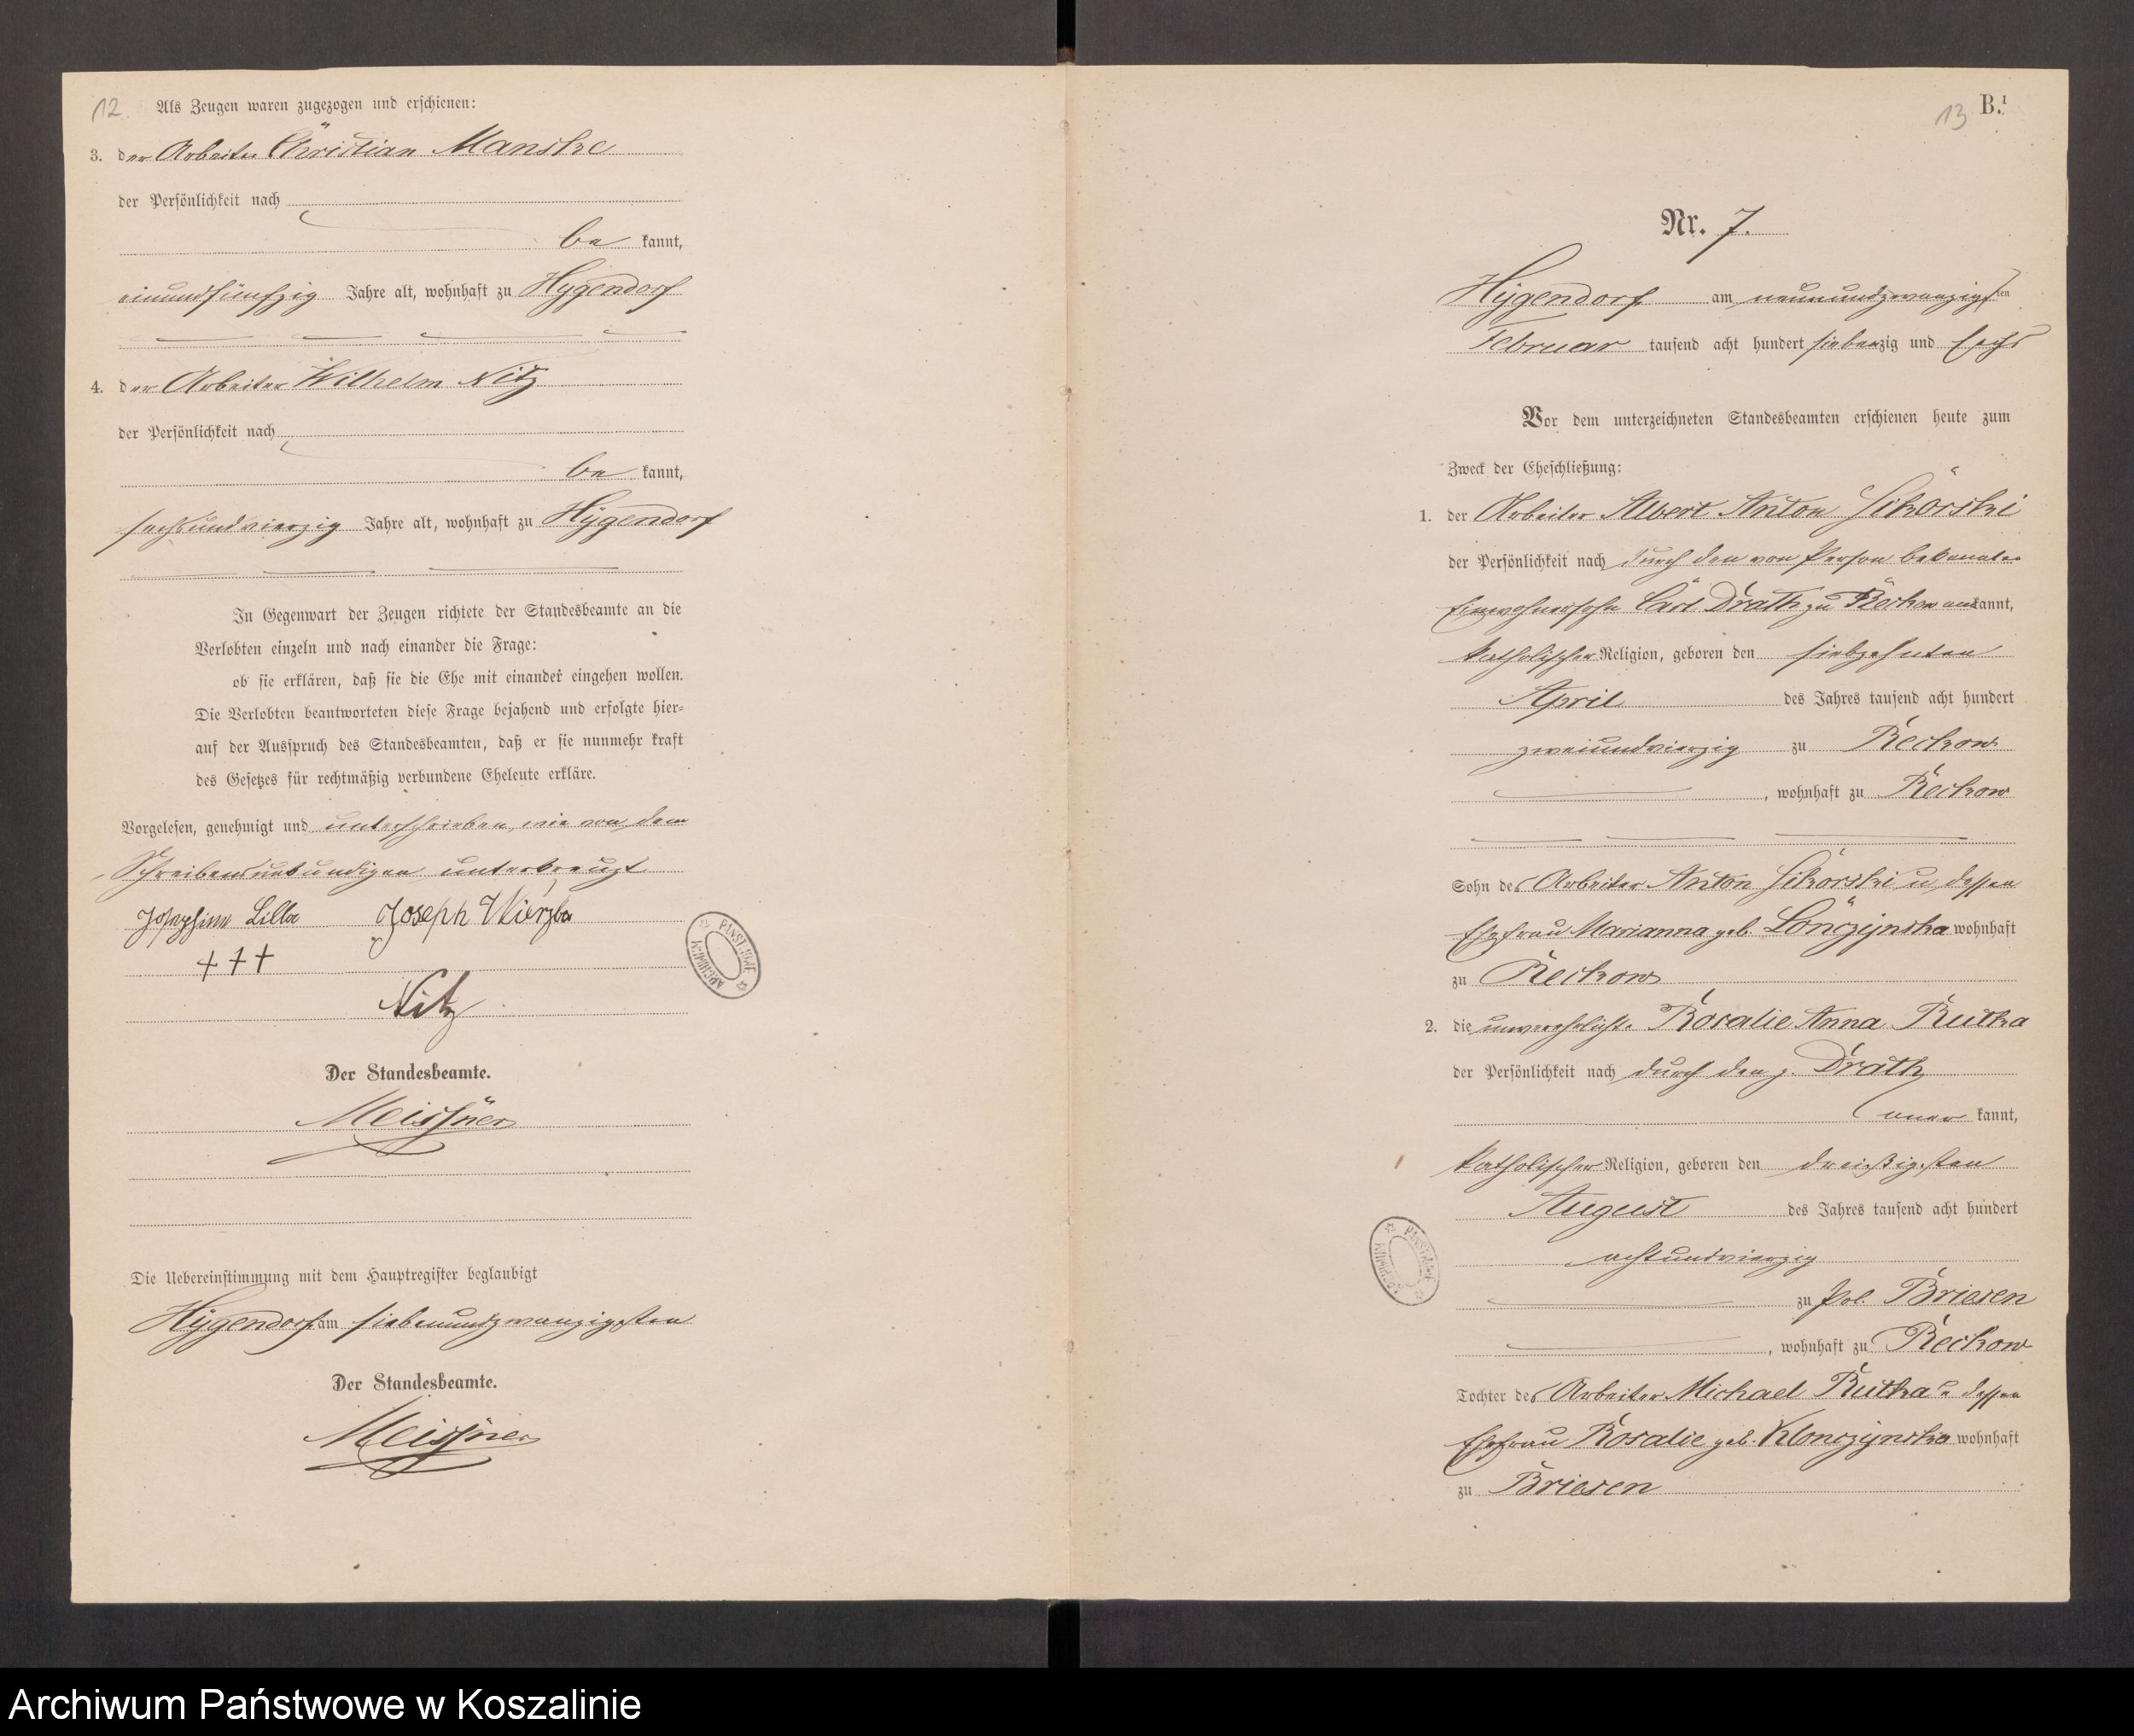 12.
Als Zeugen waren zugezogen und erschienen:
3. der Arbeiter Christian Manske
der Persönlichkeit nach
be kannt,
einundfünfzig Jahre alt, wohnhaft zu Hygendorf
4. der Arbeiter Wilhelm Nitz
der Persönlichkeit nach
be kannt,
sechsundvierzig Jahre alt, wohnhaft zu Hygendorf
In Gegenwart der Zeugen richtete der Standesbeamte an die
Verlobten einzeln und nach einander die Frage:
ob sie erklären, daß sie die Ehe mit einander eingehen wollen.
Die Verlobten beantworteten diese Frage bejahend und erfolgte hier-
auf der Ausspruch des Standesbeamten, daß er sie nunmehr kraft
des Gesetzes für rechtmäßig verbundene Eheleute erkläre.
Vorgelesen, genehmigt und unterschrieben, wie von dem
Schreibensunkundigen unterkreuzt
Josephine Lilla Joseph Wierzba
+++
Nitz
Der Standesbeamte.
Meissner
Die Uebereinstimmung mit dem Hauptregister beglaubigt
Hygendorf am siebenundzwanzigsten
Der Standesbeamte.
Meissner
ARCHIWUM PAŃSTWOWE
13
B.¹
Nr. 7.
Hygendorf am neunundzwanzigsten
Februar tausend acht hundert siebenzig und sechs
Vor dem unterzeichneten Standesbeamten erschienen heute zum
Zweck der Eheschließung:
1. der Arbeiter Albert Anton Sikorski
der Persönlichkeit nach durch den von Person bekannten
Einwohnersohn Carl Drath zu Reckow kannt,
katholischer Religion, geboren den siebzehnten
April des Jahres tausend acht hundert
zweiundvierzig zu Reckow
, wohnhaft zu Reckow
Sohn des Arbeiter Anton Sikorski u dessen
Ehefrau Marianna geb. Lonczynska wohnhaft
zu Reckow
2. die unverehelichte Rosalie Anna Rutka
der Persönlichkeit nach durch den p. Drath
aner kannt,
katholischer Religion, geboren den dreißigsten
August des Jahres tausend acht hundert
achtundvierzig
zu Pol. Briesen
, wohnhaft zu Reckow
Tochter des Arbeiter Michael Rutka u dessen
Ehefrau Rosalie geb. Klonczynska wohnhaft
zu Briesen
ARCHIWUM PAŃSTWOWE
Archiwum Państwowe w Koszalinie